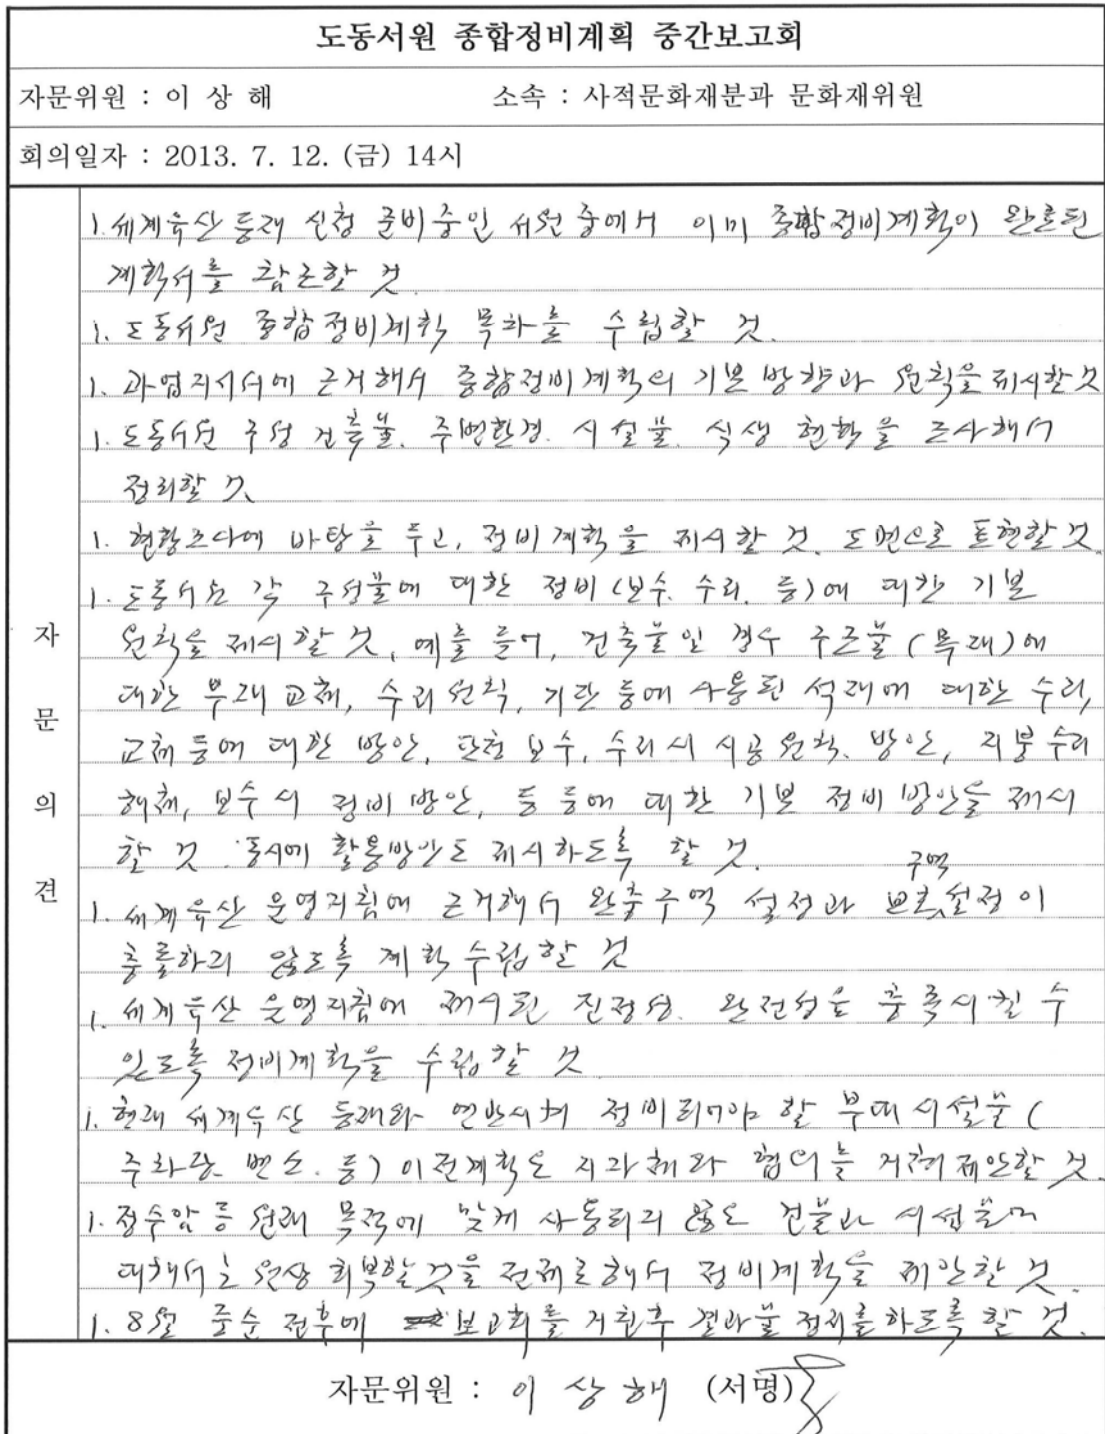 도동서원 종합정비계획 중간보고회
자문위원 : 이 상 해 소속 : 사적문화재분과 문화재위원
회의일자 : 2013. 7. 12. (금) 14시
자문의견
1. 세계유산 등재 신청 준비중인 서원 중에서 이미 종합정비계획이 완료된
계획서를 참조할 것.
1. 도동서원 종합정비계획 목차를 수립할 것.
1. 과업지시서에 근거해서 종합정비계획의 기본 방향과 원칙을 제시할 것
1. 도동서원 구성 건축물. 주변환경. 시설물. 식생 현황을 조사해서
정리할 것
1. 현황조사에 바탕을 두고, 정비계획을 제시할 것. 도면으로 표현할 것.
1. 도동서원 각 구성물에 대한 정비 (보수. 수리. 등)에 대한 기본
원칙을 제시 할 것, 예를 들어, 건축물일 경우 구조물 (목재)에
대한 부재 교체, 수리 원칙, 기단 등에 사용된 석재에 대한 수리,
교체 등에 대한 방안, 단청 보수, 수리시 시공 원칙. 방안, 지붕 수리
해체, 보수 시 정비 방안, 등 등에 대한 기본 정비 방안을 제시
할 것. 동시에 활용방안도 제시하도록 할 것.
1. 세계유산 운영지침에 근거해서 완충구역 설정과 보호구역 설정이
충돌하지 않도록 계획 수립할 것
1. 세계유산 운영지침에 제시된 진정성. 완전성을 충족시킬 수
있도록 정비계획을 수립할 것
1. 현재 세계유산 등재와 연관시켜 정비되어야 할 부대시설물 (
주차장. 변소. 등) 이전계획도 지자체와 협의를 거쳐 제안할 것.
1. 정수암 등 원래 목적에 맞게 사용되지 않는 건물과 시설물에
대해서는 원상 회복할 것을 전제로 해서 정비계획을 제안할 것.
1. 8월 중순 전후에 보고회를 거친후 결과물 정리를 하도록 할 것.
자문위원 : 이 상 해 (서명)